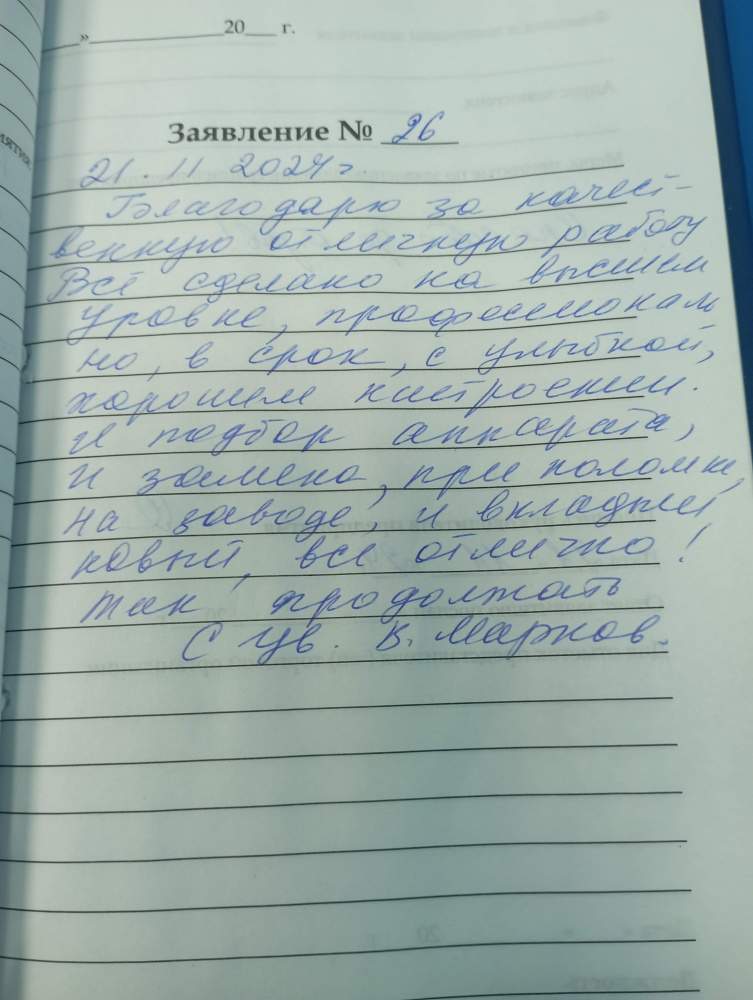 »
20 г.
Заявление № 26
21.11 2024г.
Благодарю за качест-
венную отличную работу
Всё сделано на высшем
уровне, профессионал
но, в срок, с улыбкой,
хорошем настроении.
И подбор аппарата,
и замена, при поломке,
на заводе, и вкладыш
новый, все отлично!
так продолжать
С Ув. В. Марков.